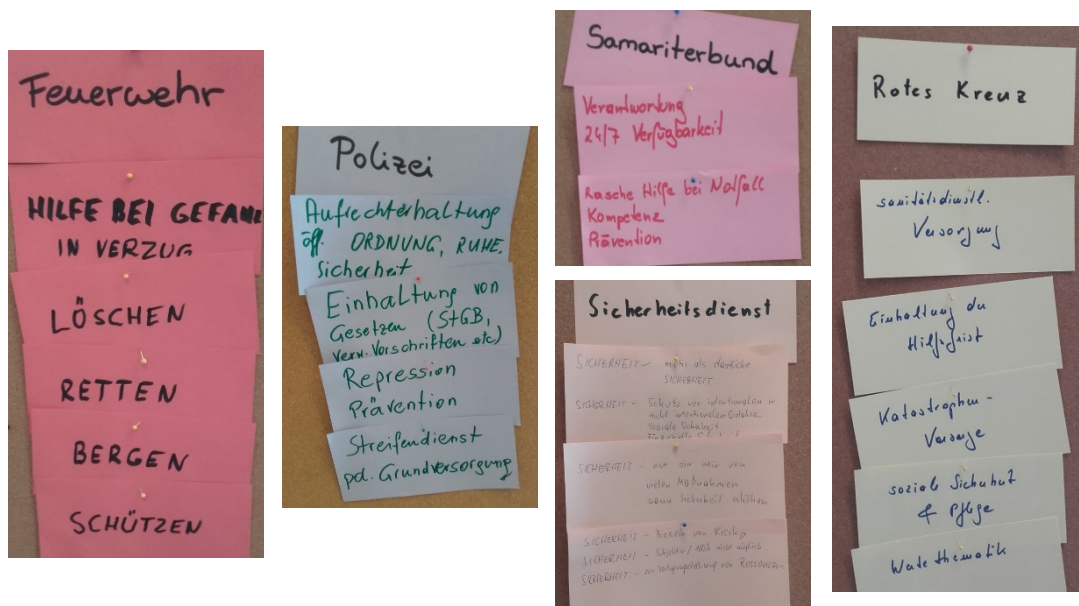 Feuerwehr
HILFE BEI GEFAHR
IN VERZUG
LÖSCHEN
RETTEN
BERGEN
SCHÜTZEN
Polizei
Aufrechterhaltung
öff. ORDNUNG, RUHE,
Sicherheit
Einhaltung von
Gesetzen (StGB,
verw. Vorschriften etc)
Repression
Prävention
Streifendienst
pol. Grundversorgung
Samariterbund
Verantwortung
24/7 Verfügbarkeit
Rasche Hilfe bei Notfall
Kompetenz
Prävention
Sicherheitsdienst
SICHERHEIT - mehr als
SICHERHEIT
SICHERHEIT - Schutz vor intentionalen u
nicht intentionalen
soziale Sicherheit
SICHERHEIT -
vielen Maßnahmen
SICHERHEIT -
SICHERHEIT -
SICHERHEIT - von Ressourcen
Rotes Kreuz
sanitätsdienstl.
Versorgung
Einhaltung der
Hilfsfrist
Katastrophen-
Vorsorge
soziale Sicherheit
& Pflege